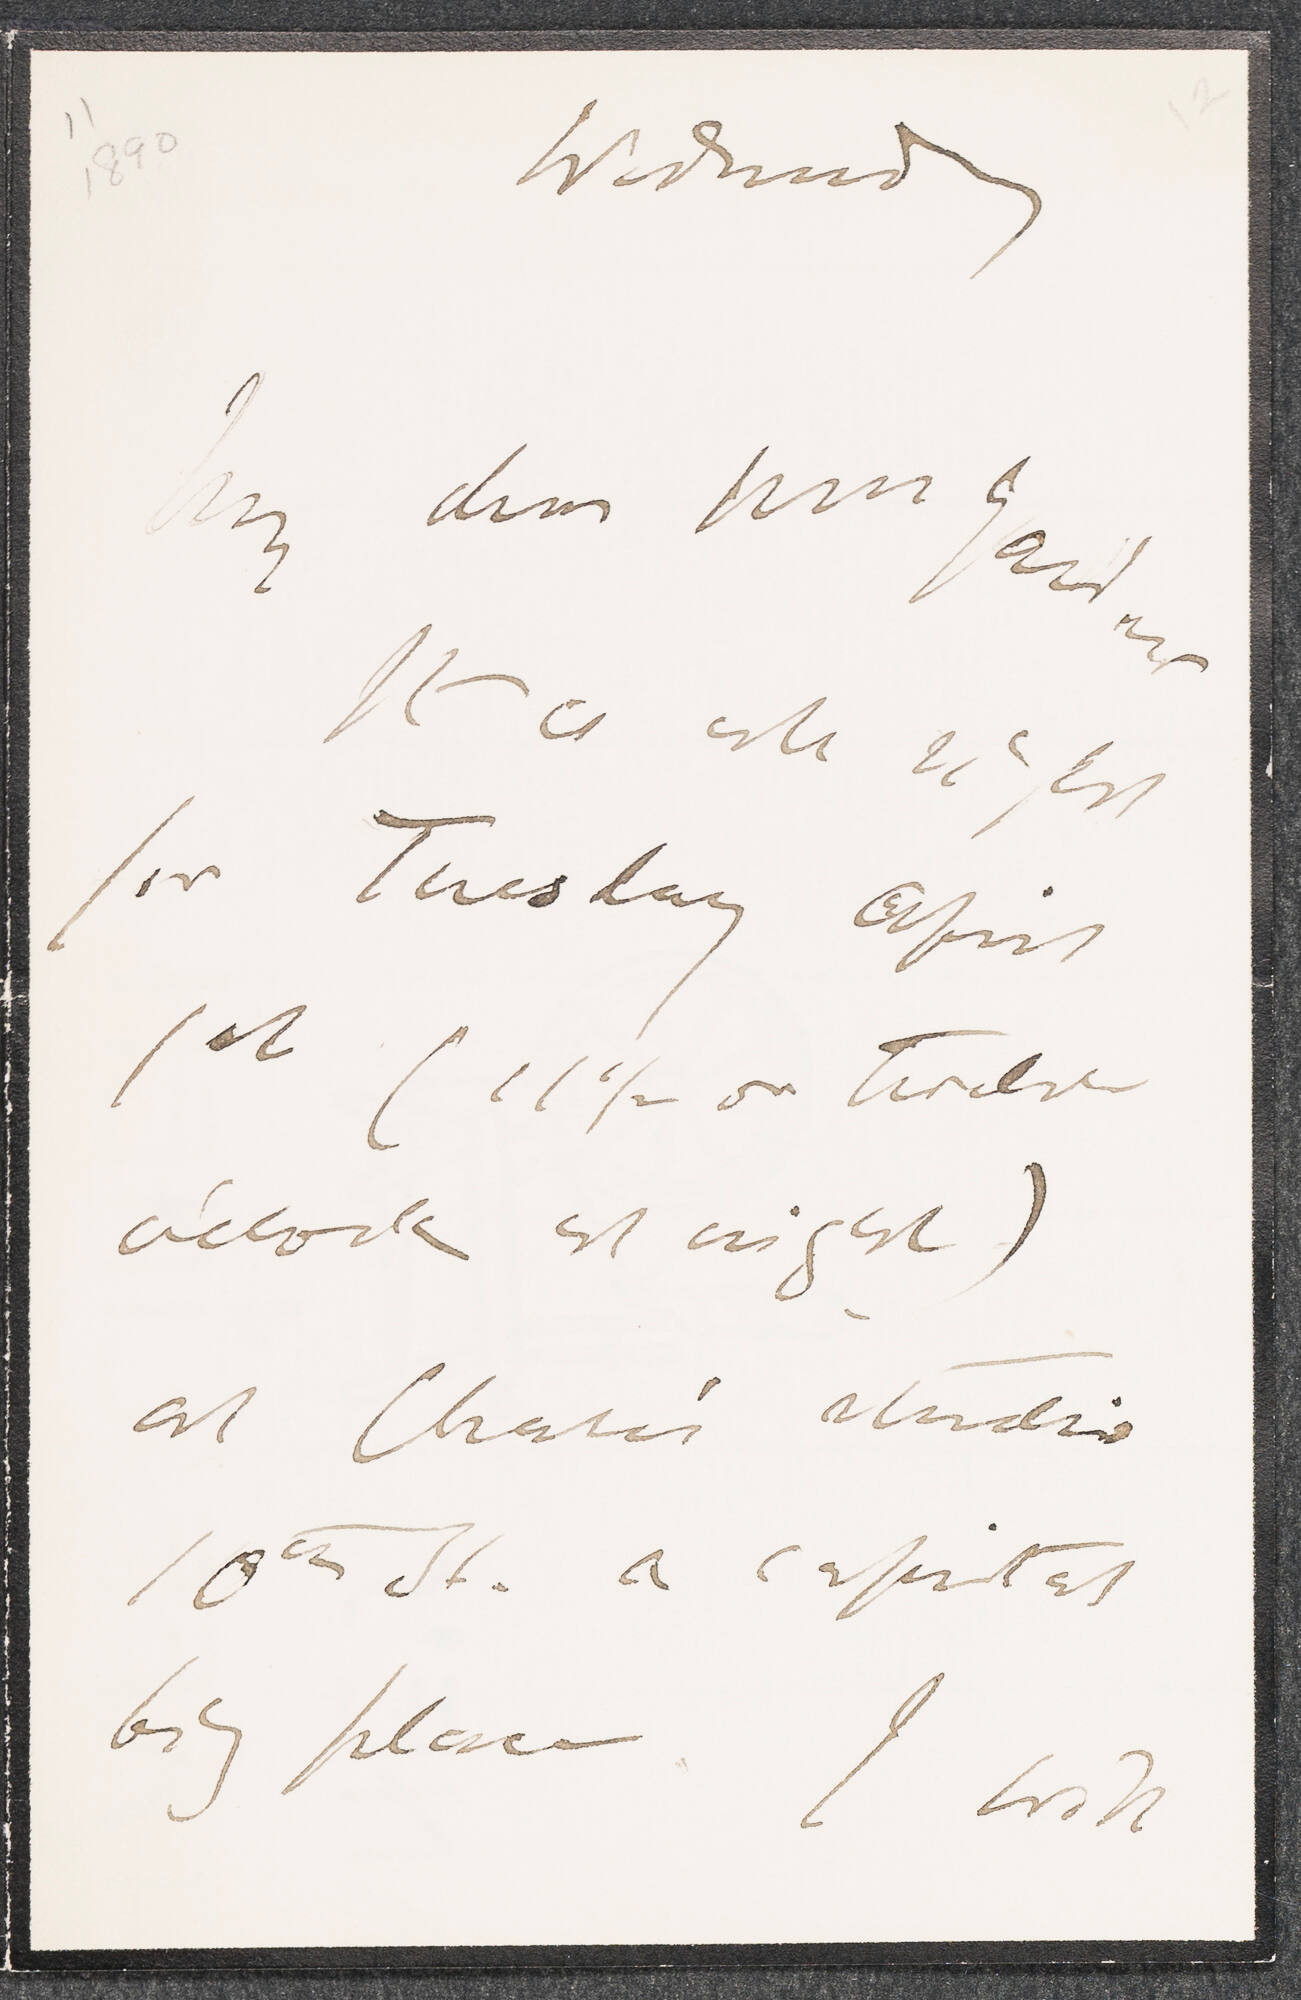 11
1890
12
Wednesday
My dear Mrs Gardner
It is all right
for Tuesday April
1st (11 1/2 or twelve
o'clock at night)
at Chase's studio
10th St. a capital
big place. I will